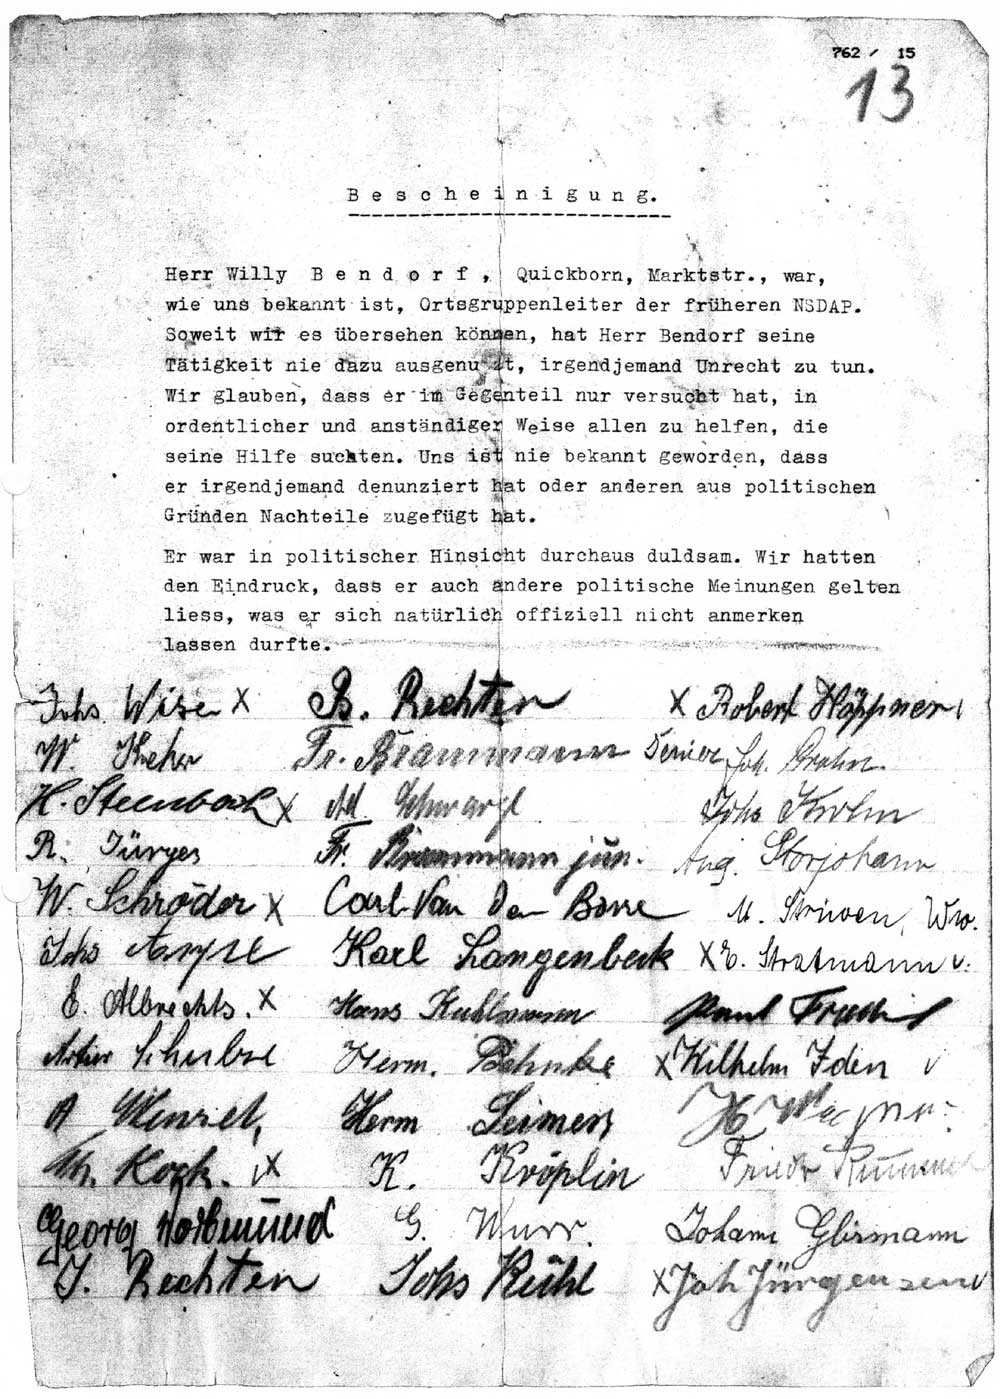 762 / 15
13
Bescheinigung.
Herr Willy Bendorf, Quickborn, Marktstr., war,
wie uns bekannt ist, Ortsgruppenleiter der früheren NSDAP.
Soweit wir es übersehen können, hat Herr Bendorf seine
Tätigkeit nie dazu ausgenutzt, irgendjemand Unrecht zu tun.
Wir glauben, dass er im Gegenteil nur versucht hat, in
ordentlicher und anständiger Weise allen zu helfen, die
seine Hilfe suchten. Uns ist nie bekannt geworden, dass
er irgendjemand denunziert hat oder anderen aus politischen
Gründen Nachteile zugefügt hat.
Er war in politischer Hinsicht durchaus duldsam. Wir hatten
den Eindruck, dass er auch andere politische Meinungen gelten
liess, was er sich natürlich offiziell nicht anmerken
lassen durfte.
Johs x B. Rechten x Robert Höppner
W. Fr. Brammann Joh.
H. Steenbock x Ad. Johs Krohn
R. Jürges Fr. Brammann jun. Aug. Storjohann
W. Schröder x Carl Van Den M. Strüven, Ww.
Johs Karl Langenbeck x E. Stratmann
E. Albrechts. x Hans Kuhlmann Paul
Artur Schulze Herm. Behnke x Wilhelm Iden
A Wenzel, Herm Seimers H
Th. Kock. x K. Kröplin Friedr
Georg G. Wurr. Johann Glismann
J. Rechten Johs Kühl x Joh Jürgensen